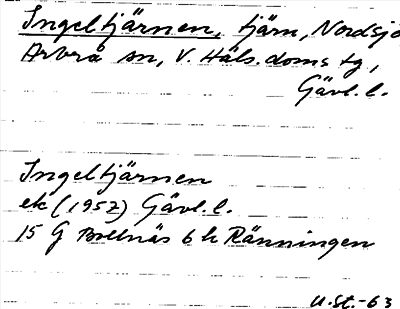 Ingeltjärnen, tjärn, Nordsjö
Arbrå sn, V. Häls. doms tg,
Gävl. l.
Ingeltjärnen
ek (1952) Gävl. l.
15 G Bollnäs 6 h Ränningen
U. St. -63